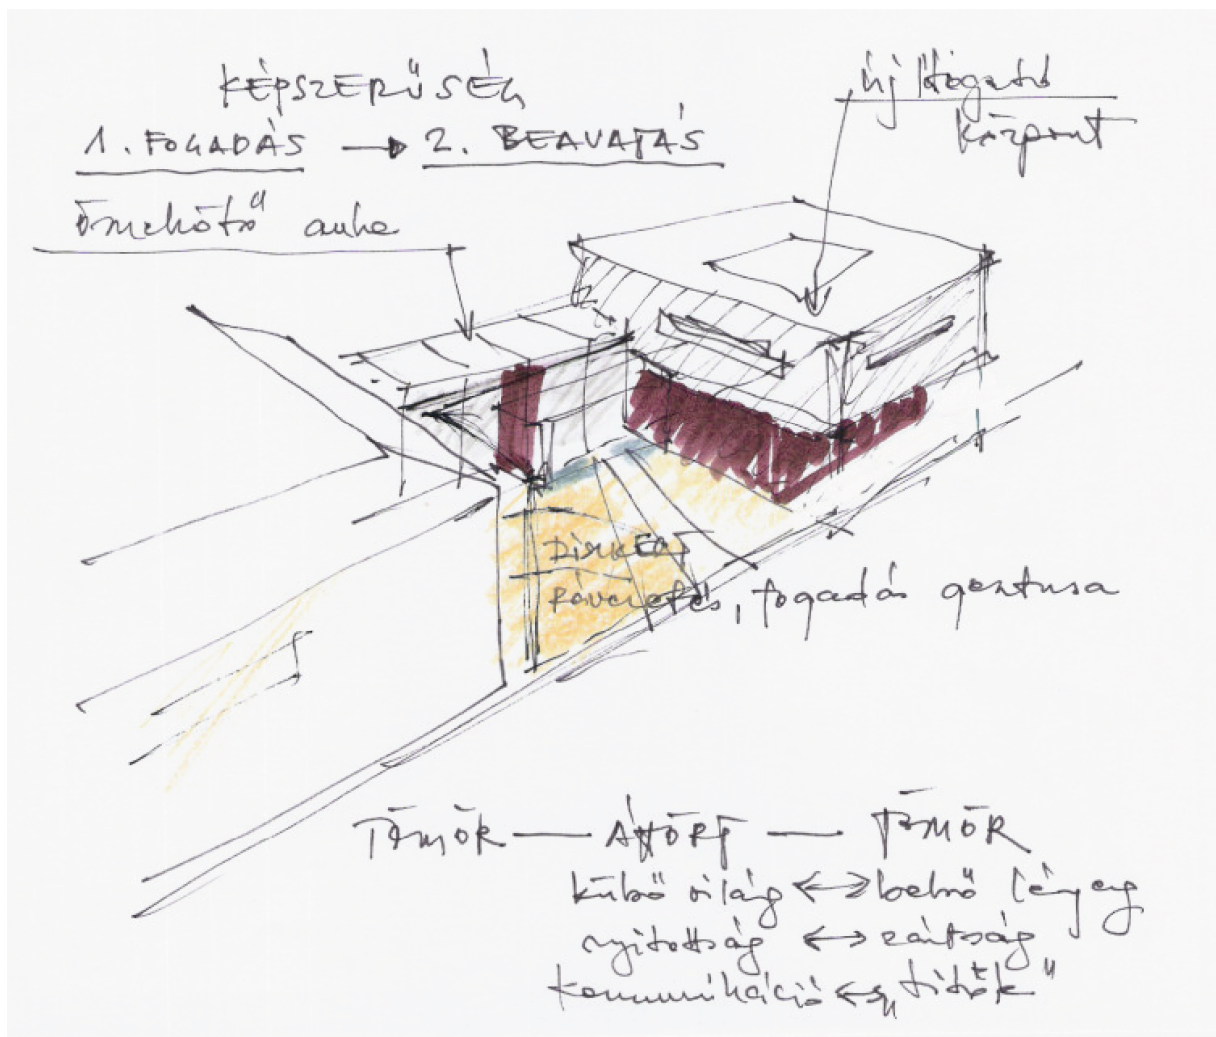 KÉPSZERŰSÉG
1. FOGADÁS → 2. BEAVATÁS
új látogató
központ
összekötő"
DIREKT
rávezetés, fogadás gesztusa
TÖMÖR — ÁTTÖRT — TÖMÖR
külső világ ↔ belső lényeg
nyitottság ↔ zártság
kommunikáció ↔ „titok"